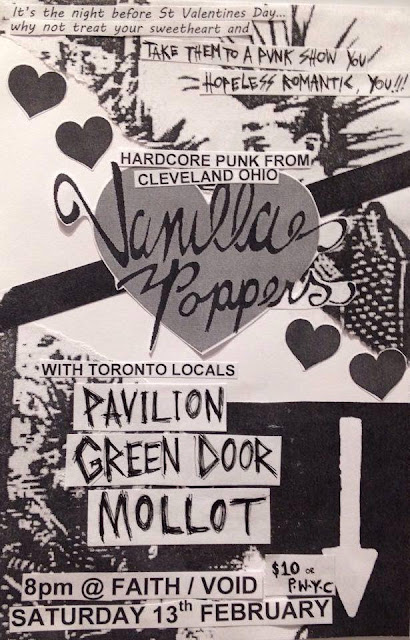 It's the night before St Valentines Day...
why not treat your sweetheart and
TAKE THEM TO A PUNK SHOW YOU
HOPELESS ROMANTIC, YOU!!!
HARDCORE PUNK FROM
CLEVELAND OHIO
Vanilla
Poppers
WITH TORONTO LOCALS
PAVILION
GREEN DOOR
MOLLOT
$10 OR
P.W.Y.C
8pm @ FAITH / VOID
SATURDAY 13th FEBRUARY